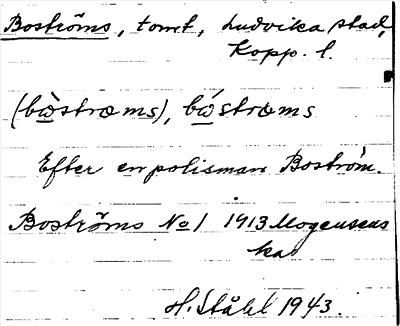 Boströms, tomt, Ludvika stad,
Kopp. l.
(bὼstrœms), bώstrœms
Efter en polisman Boström.
Boströms No 1 1913 Mogensens
ka
H. Ståhl 1943.